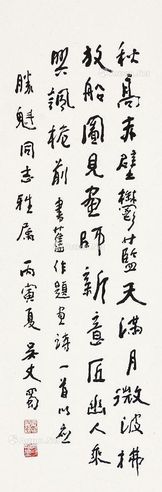 秋高赤壁欝藍天滿月微波拂
放船圖見畫師新意匠幽人乘
興諷桅前 書舊作題畫詩一首以應
勝魁同志雅属 丙寅夏 吴丈蜀